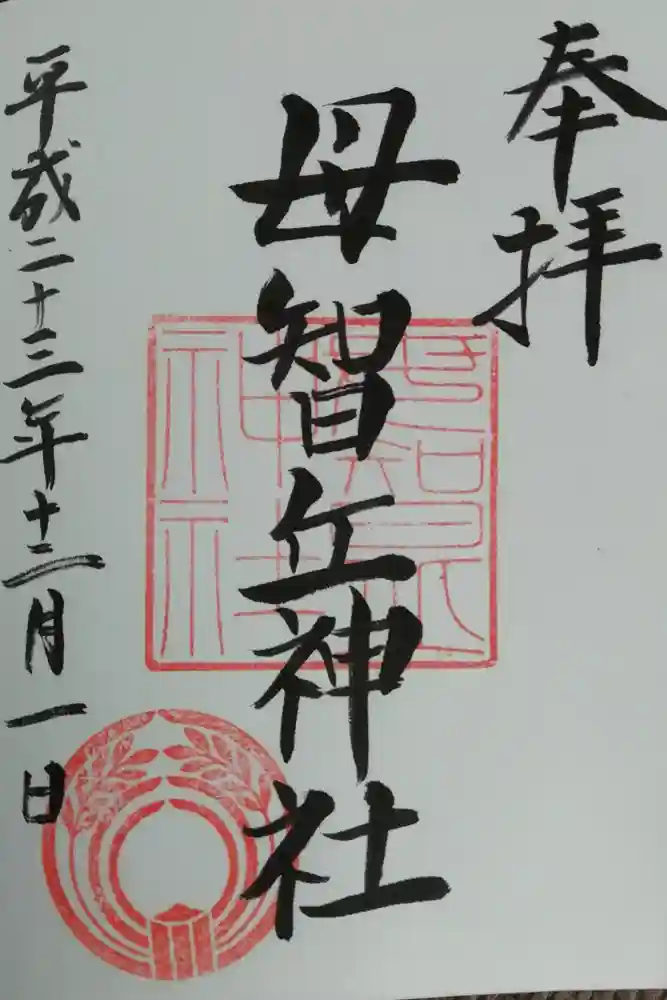 奉拝
母智丘神社
平成二十三年十二月一日